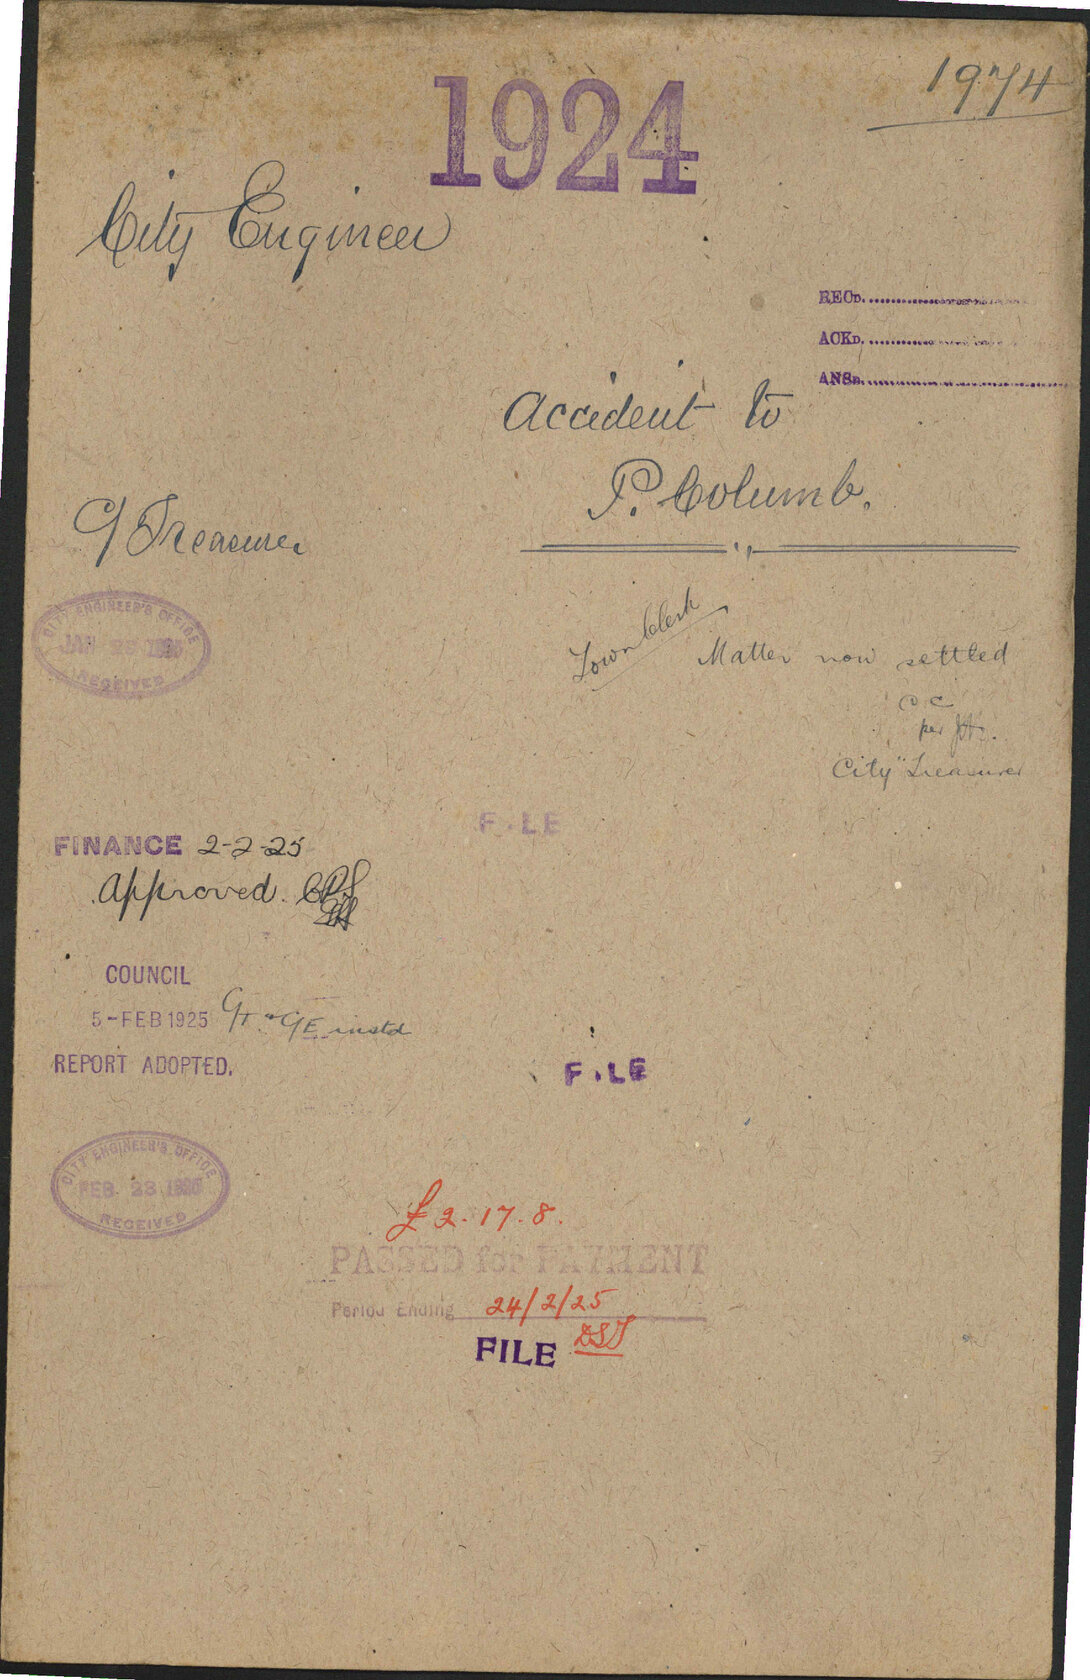 1974
1924
City Engineer
RECD.
ACKD.
ANSD.
Accident to
P. Columb.
C/ Treasurer
CITY ENGINEER'S OFFICE
JAN 29
RECEIVED
Town Clerk
Matter now settled
C C
per
City Treasurer
F.LE
FINANCE 2-2-25
Approved.
COUNCIL
5-FEB 1925
REPORT ADOPTED.
F.LE
CITY ENGINEER'S OFFICE
FEB. 23
RECEIVED
£2.17.8.
PASSED for PAYMENT
Period Ending 24/2/25
FILE